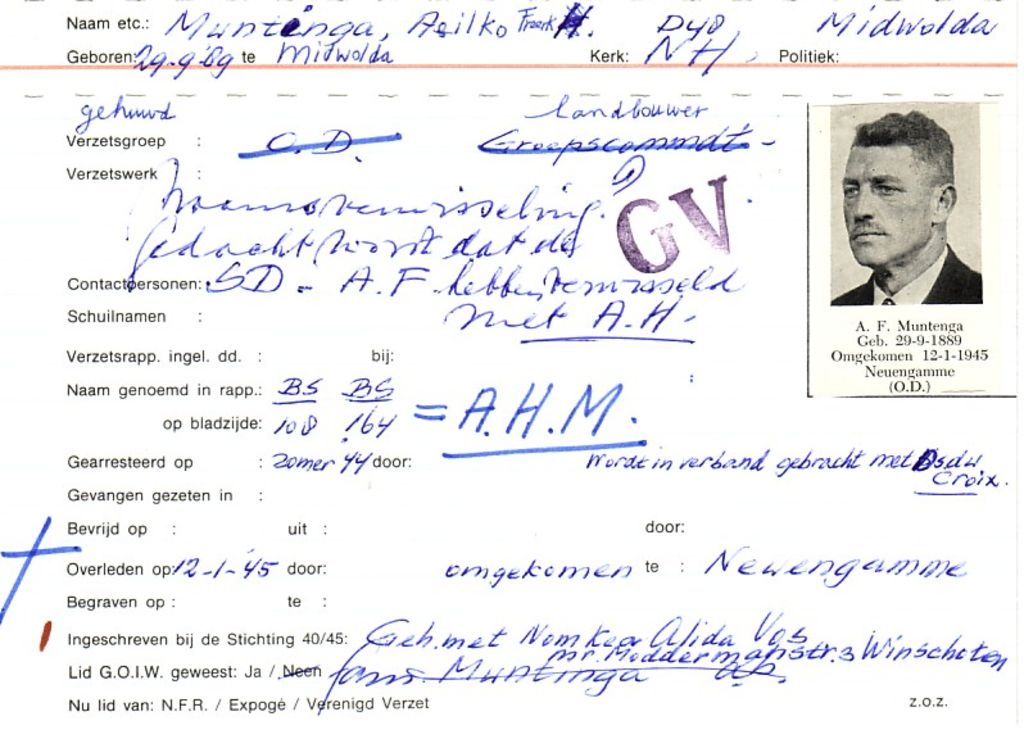 Naam etc.: Muntinga, Aeilko Freerk H. D48 Midwolda
Geboren: 29-9-89 te Midwolda Kerk: NH, Politiek:
gehuwd landbouwer
Verzetsgroep : O.D. Groepscommdt -
Verzetswerk :
Naamsverwisseling?
GV
Gedacht wordt dat de
Contactpersonen: SD - A.F. hebben verwisseld
Schuilnamen : met A.H.
A. F. Muntenga
Geb. 29-9-1889
Omgekomen 12-1-1945
Neuengamme
(O.D.)
Verzetsrapp. ingel. dd. : bij:
Naam genoemd in rapp.: BS BS
op bladzijde: 108 164
= A.H.M.
Gearresteerd op : zomer 44 door: wordt in verband gebracht met
Croix.
Gevangen gezeten in :
Bevrijd op : uit : door:
Overleden op: 12-1-'45 door: omgekomen te : Newengamme
Begraven op : te :
Ingeschreven bij de Stichting 40/45: Geh. met Alida Vos
mr. Moddermanstr. 3 Winschoten
Lid G.O.I.W. geweest: Ja / Neen fam. Muntinga
Nu lid van: N.F.R. / Expogé / Verenigd Verzet z.o.z.